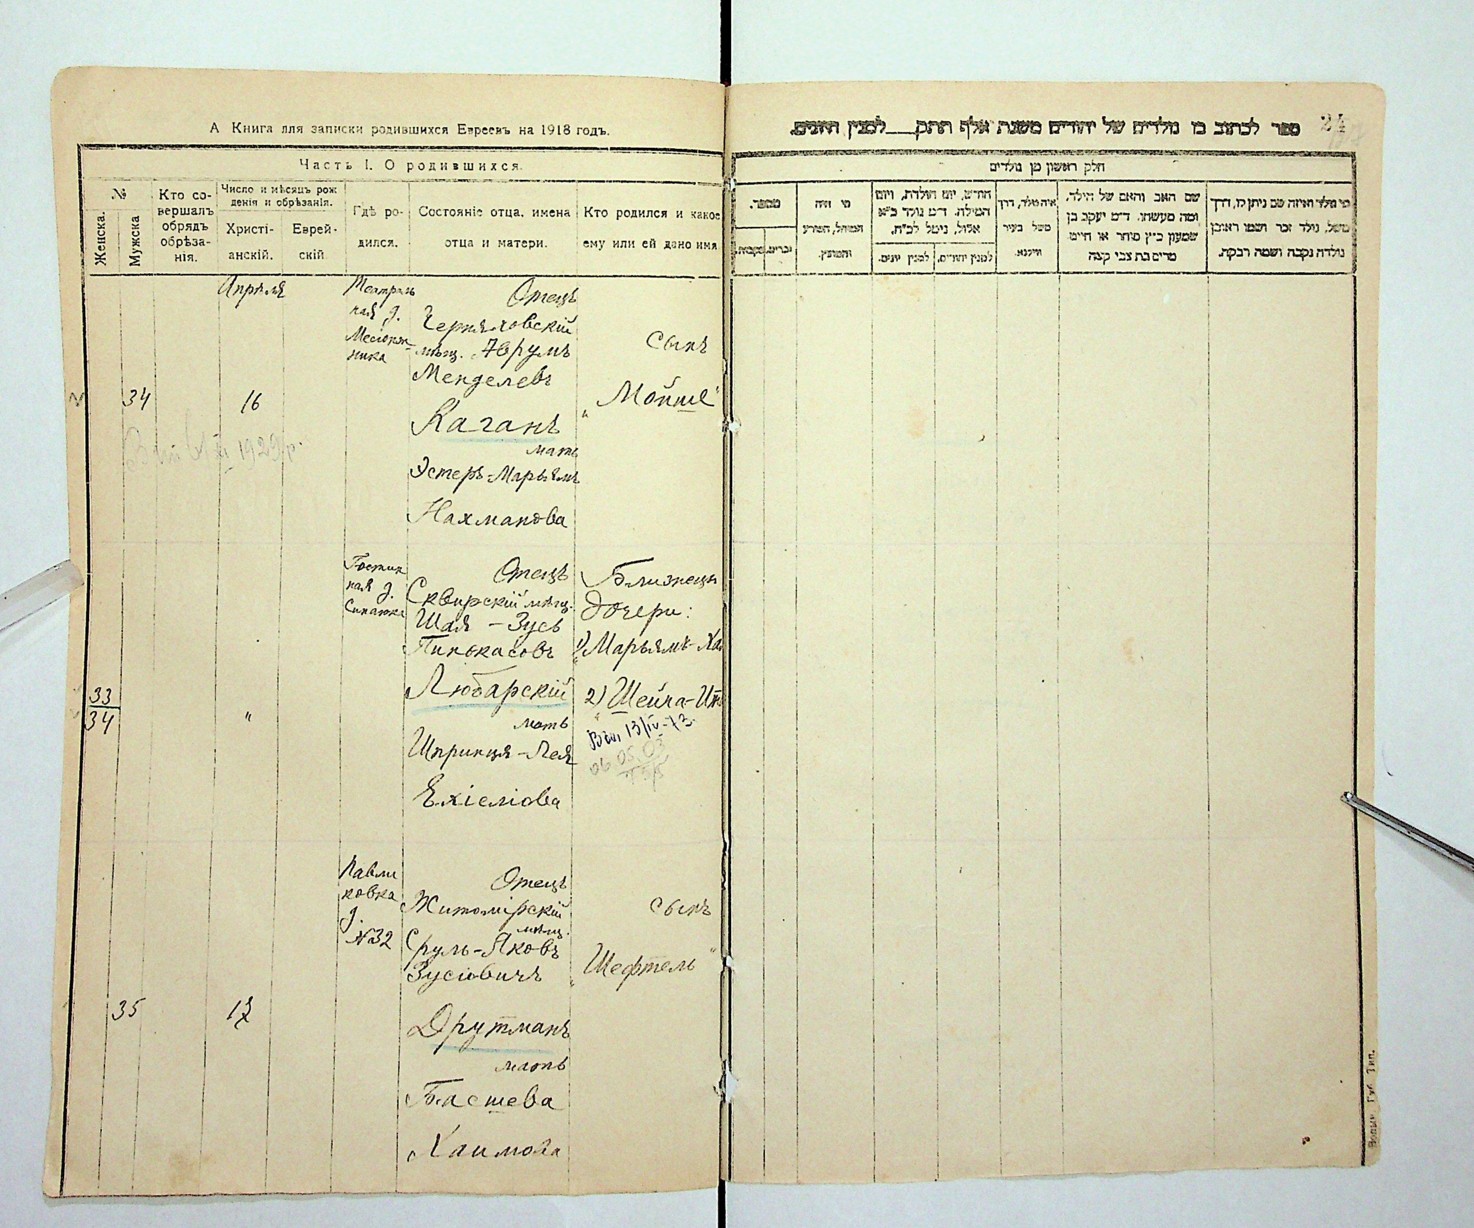 А Книга для записки родившихся Евреевъ на 1918 годъ.
Часть I. О родившихся.
№
Женска.
Мужска
Кто со-
вершалъ
обрядъ
обрѣза-
нія.
Число и мѣсяцъ рож
денія и обрѣзанія.
Христі-
анскій.
Еврей-
скій
Гдѣ ро-
дился.
Состояніе отца, имена
отца и матери.
Кто родился и какое
ему или ей дано имя
34
Апрѣля
16
Театраль
ная д.
ника
Отецъ
Черняховскій
мѣщ. Аврумъ
Менделевъ
Каганъ
мать
Эстеръ-Марьямъ
Нахманова
сынъ
„Мойше“
1929 г.
33
34
"
"
Гостин
ная д.
Отецъ
Сквирскій мѣщ.
Шая - Зусь
Пинькасовъ
Любарскій
мать
Шпринця-Лея
Ехіеліова
Близнецы
дочери:
1) Марьямъ-Ха
2) Шейна-Ит
13/IV-73.
06.05.03
35
17
Павли
ковка
д.
№32
Отецъ
Житомірскій
мѣщ.
Сруль-Яковъ
Зусіовичъ
Друтманъ
мать
Басшева
Хаимова
сынъ
„Шефтель“
ספר לכתוב בו נולדים של יהודים משנת אלף תתק___למנין היונים.
24
חלק ראשון מן נולדים
מספר.
נקבות.
זכרים.
מי היה
המוהל, הפורע
והמוצץ.
חודש, יום הולדת, ויום
המילה. ד״מ נולד כ״א
אלול, נימל לכ״ח.
למנין יונים.
למנין יהודים.
איה נולד, דרך
משל בעיר
ווילנא.
שם האב והאם של הילד,
ומה מעשהו. ד״מ יעקב בן
שמעון כ״ץ סוחר או חייט
מרים בת צבי קצה
מי נולד ואיזה שם ניתן לו, דרך
משל, נולד זכר ושמו ראובן
נולדה נקבה ושמה רבקה.
Волын. Губ. Тип.